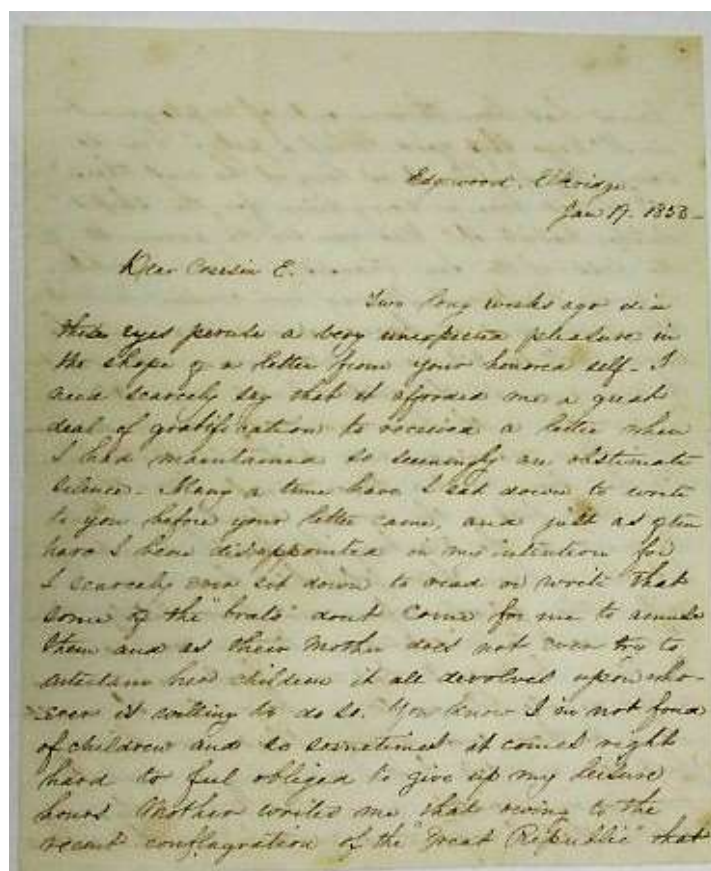 Edgewood. Elkridge.
Jan 17. 1853 -
Dear Cousin E.
Two long weeks ago did
these eyes peruse a very unexpected pleasure in
the shape of a letter from your honored self - I
need scarcely say that it afforded me a great
deal of gratification to received a letter when
I had maintained so seemingly an obstinate
silence - Many a time have I sat down to write
to you before your letter came, and just as often
have I been disappointed in my intention for
I scarcely ever sit down to read or write that
some of the "brats" dont come for me to amuse
them and as their Mother does not even try to
entertain her children it all devolves upon who-
ever is willing to do so. You know I'm not fond
of children and so sometimes it comes right
hard to feel obliged to give up my leisure
hours Mother writes me that owing to the
recent conflagration of the "Great Republic" that